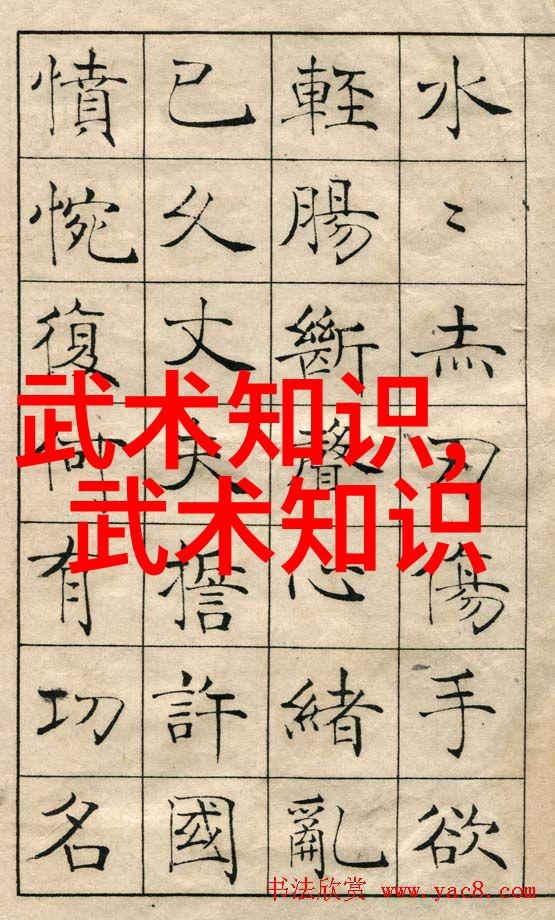 水〻赤刃傷手欲
輕腸斷聲心緒亂
已久丈夫誓許國
憤惋復何有功名
武术知识,
武术知识
书法欣赏 www.yac8.com